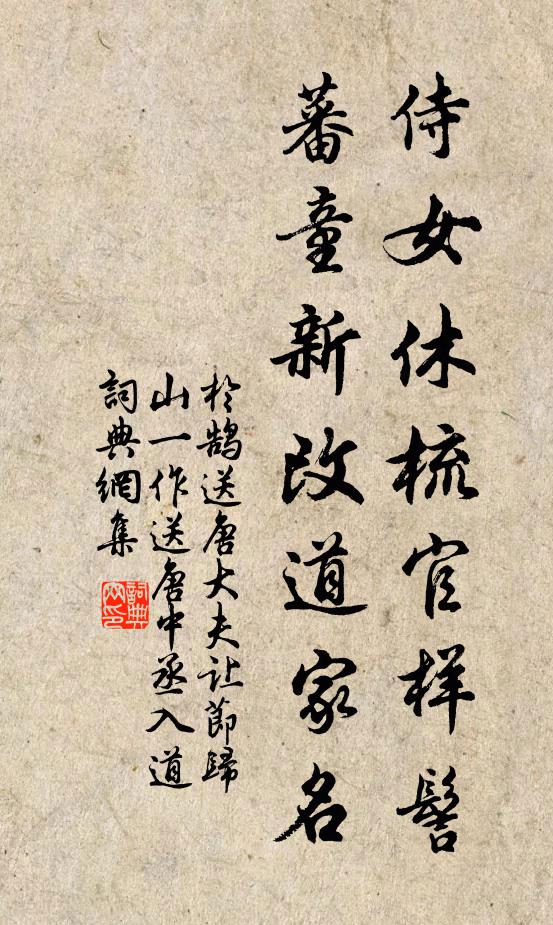 侍女休梳官样髻
蕃童新改道家名
於鵠送唐大夫让節歸
山一作送唐中丞入道
詞典網集
詞典
网印